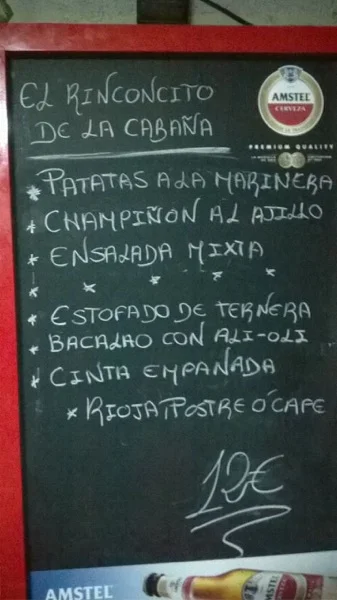 EL RINCONCITO
DE LA CABAÑA
AMSTEL
CERVEZA
PREMIUM QUALITY
* PATATAS A LA MARINERA
* CHAMPIÑON AL AJILLO
* ENSALADA MIXTA
* * * * *
* ESTOFADO DE TERNERA
* BACALAO CON ALI-OLI
* CINTA EMPAÑADA
* RIOJA, POSTRE O CAFE
12€
AMSTEL
AMSTEL